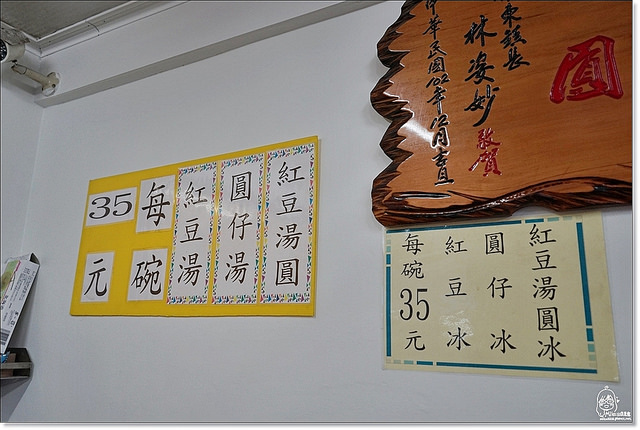 紅豆湯圓
圓仔湯
紅豆湯
每碗
35元
圓
東鎮長
林姿妙 敬賀
中華民國102年12月吉旦
紅豆湯圓冰
圓仔冰
紅豆冰
每碗35元